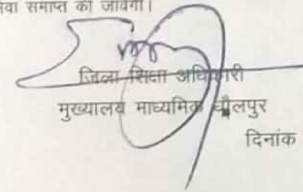 सेवा समाप्त की जावेगी।
जिला शिक्षा अधिकारी
मुख्यालय माध्यमिक धौलपुर
दिनांक